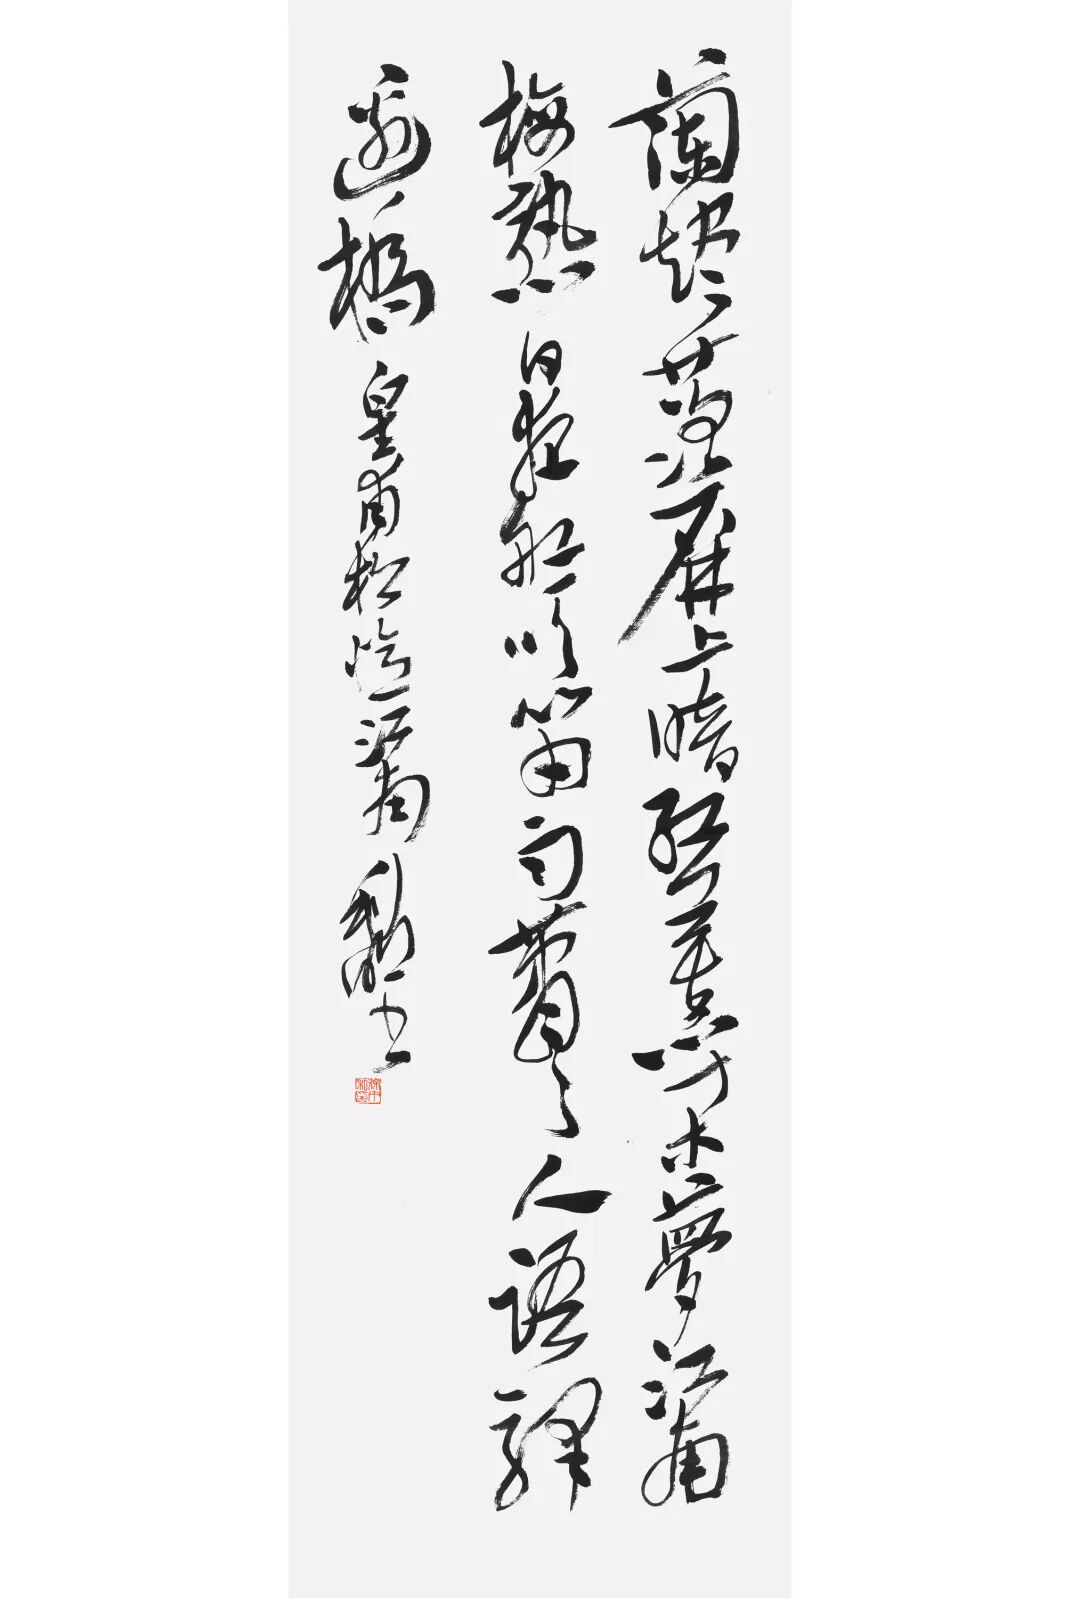 蘭烬落屏上暗紅蕉閑夢江南
梅熟日夜船吹笛雨蕭々人語驛
邊橋 皇甫松憶江南 书